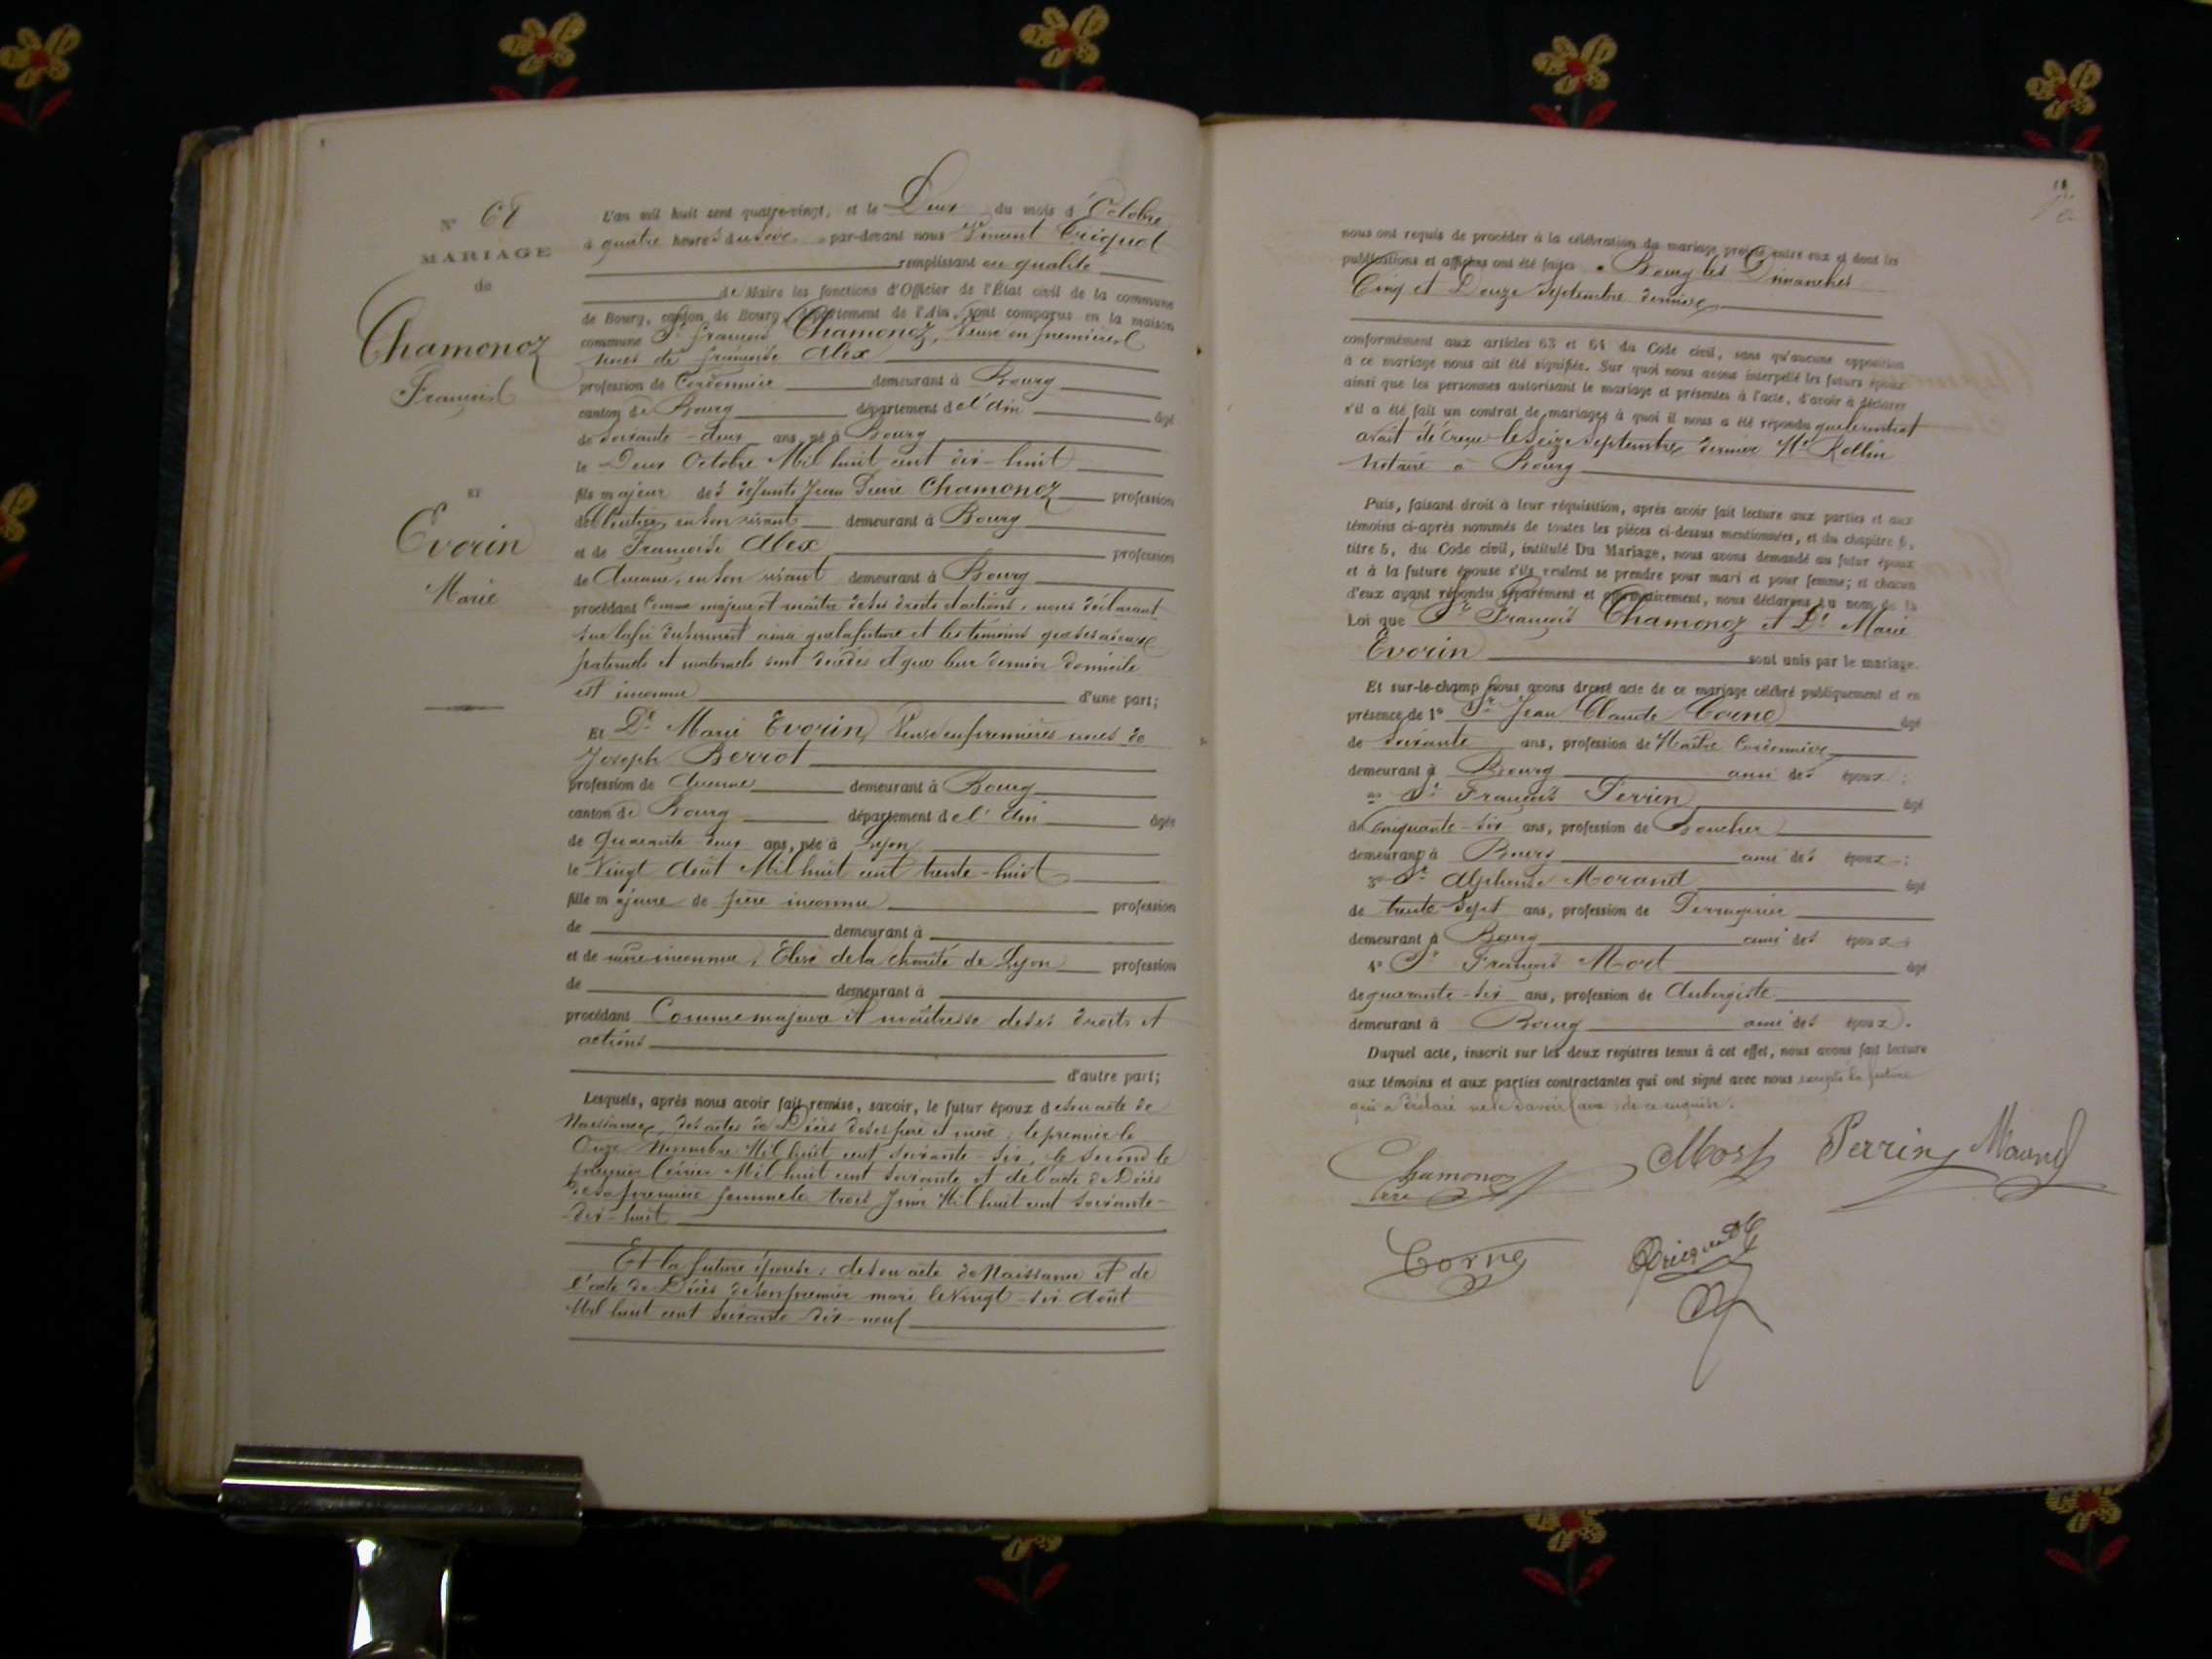 N° 68
MARIAGE
de
Chamonoz
François
ET
Evorin
Marie
L'an mil huit cent quatre-vingt, et le Deux du mois d'Octobre
à quatre heures du soir par-devant nous
remplissant en qualité
de Maire les fonctions d'Officier de l'État civil de la commune
de Bourg, canton de Bourg, département de l'Ain, sont comparus en la maison
commune Sr François Chamonoz, Veuf en premières
noces de Françoise Alex
profession de Cordonnier demeurant à Bourg
canton de Bourg département de l'Ain âgé
de Soixante-deux ans, né à Bourg
le Deux Octobre Mil huit cent dix-huit
fils majeur des défunts Jean Pierre Chamonoz profession
de en son vivant demeurant à Bourg
et de Françoise Alex profession
de Aucune, en son vivant demeurant à Bourg
procédant Comme majeur et maître de ses droits et actions, nous déclarant
sur la foi du serment ainsi que la future et les témoins que ses aïeux
paternels et maternels sont décédés et que leur dernier domicile
est inconnu d'une part;
Et De Marie Evorin, Veuve en premières noces de
Joseph Berrot
profession de Aucune demeurant à Bourg
canton de Bourg département de l'Ain âgée
de Quarante deux ans, née à Lyon
le Vingt Août Mil huit cent trente-huit
fille majeure de père inconnu profession
de demeurant à
et de mère inconnue, Elève de la charité de Lyon profession
de demeurant à
procédant Comme majeure et maîtresse de ses droits et
actions
d'autre part;
Lesquels, après nous avoir fait remise, savoir, le futur époux de son acte de
Naissance, des actes de Décès de ses père et mère, le premier le
Onze Novembre Mil huit cent soixante-six, le second le
premier Février Mil huit cent soixante et de l'acte de Décès
de sa première femme le trois Juin Mil huit cent soixante-
-dix-huit
Et la future épouse, de son acte de Naissance et de
l'acte de Décès de son premier mari le Vingt-six Août
Mil huit cent soixante dix-neuf
nous ont requis de procéder à la célébration du mariage projeté entre eux et dont les
publications et affiches ont été faites à Bourg les Dimanches
Cinq et Douze Septembre dernier
conformément aux articles 63 et 64 du Code civil, sans qu'aucune opposition
à ce mariage nous ait été signifiée. Sur quoi nous avons interpellé les futurs époux
ainsi que les personnes autorisant le mariage et présentes à l'acte, d'avoir à déclarer
s'il a été fait un contrat de mariage, à quoi il nous a été répondu que le contrat
avait été reçu le Seize Septembre dernier Me Rollin
Notaire à Bourg
Puis, faisant droit à leur réquisition, après avoir fait lecture aux parties et aux
témoins ci-après nommés de toutes les pièces ci-dessus mentionnées, et du chapitre 6,
titre 5, du Code civil, intitulé Du Mariage, nous avons demandé au futur époux
et à la future épouse s'ils veulent se prendre pour mari et pour femme; et chacun
d'eux ayant répondu séparément et affirmativement, nous déclarons au nom de la
Loi que Sr François Chamonoz et De Marie
Evorin sont unis par le mariage.
Et sur-le-champ nous avons dressé acte de ce mariage célébré publiquement et en
présence de 1° Sr Jean Claude Corne âgé
de soixante ans, profession de Maître Cordonnier
demeurant à Bourg ami des époux;
2° Sr François Perrin âgé
de Cinquante-six ans, profession de Boucher
demeurant à Bourg ami des époux;
3° Sr Alphonse Morand âgé
de trente sept ans, profession de Perruquier
demeurant à Bourg ami des époux;
4° Sr François Mort âgé
de quarante-six ans, profession de Aubergiste
demeurant à Bourg ami des époux.
Duquel acte, inscrit sur les deux registres tenus à cet effet, nous avons fait lecture
aux témoins et aux parties contractantes qui ont signé avec nous excepté la future
qui a déclaré ne le savoir faire, de ce enquise.
Chamonoz Mort Perrin Morand
père
Corne